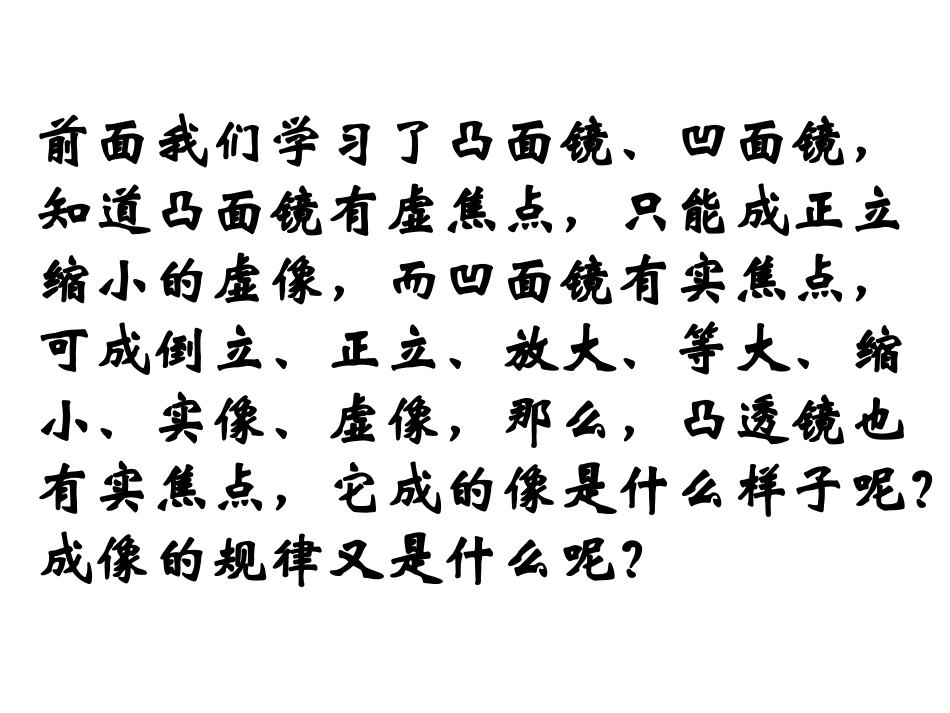 前面我们学习了凸面镜、凹面镜，
知道凸面镜有虚焦点，只能成正立
缩小的虚像，而凹面镜有实焦点，
可成倒立、正立、放大、等大、缩
小、实像、虚像，那么，凸透镜也
有实焦点，它成的像是什么样子呢？
成像的规律又是什么呢？